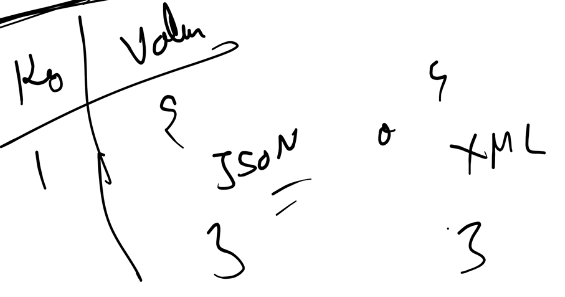 Key Value
{ {
1 JSON or XML
} }